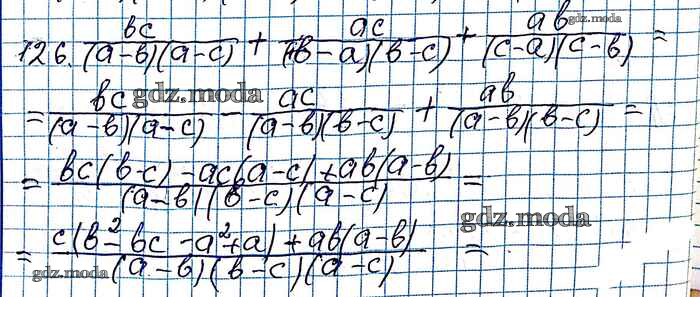 126. bc/((a-b)(a-c)) + ac/((b-a)(b-c)) + ab/((c-a)(c-b)) =
= bc/((a-b)(a-c)) - ac/((a-b)(b-c)) + ab/((a-b)(b-c)) =
= (bc(b-c) - ac(a-c) + ab(a-b))/((a-b)(b-c)(a-c)) =
= (c(b²-bc-a²+a) + ab(a-b))/((a-b)(b-c)(a-c)) =
gdz.moda
gdz.moda
gdz.moda
gdz.moda